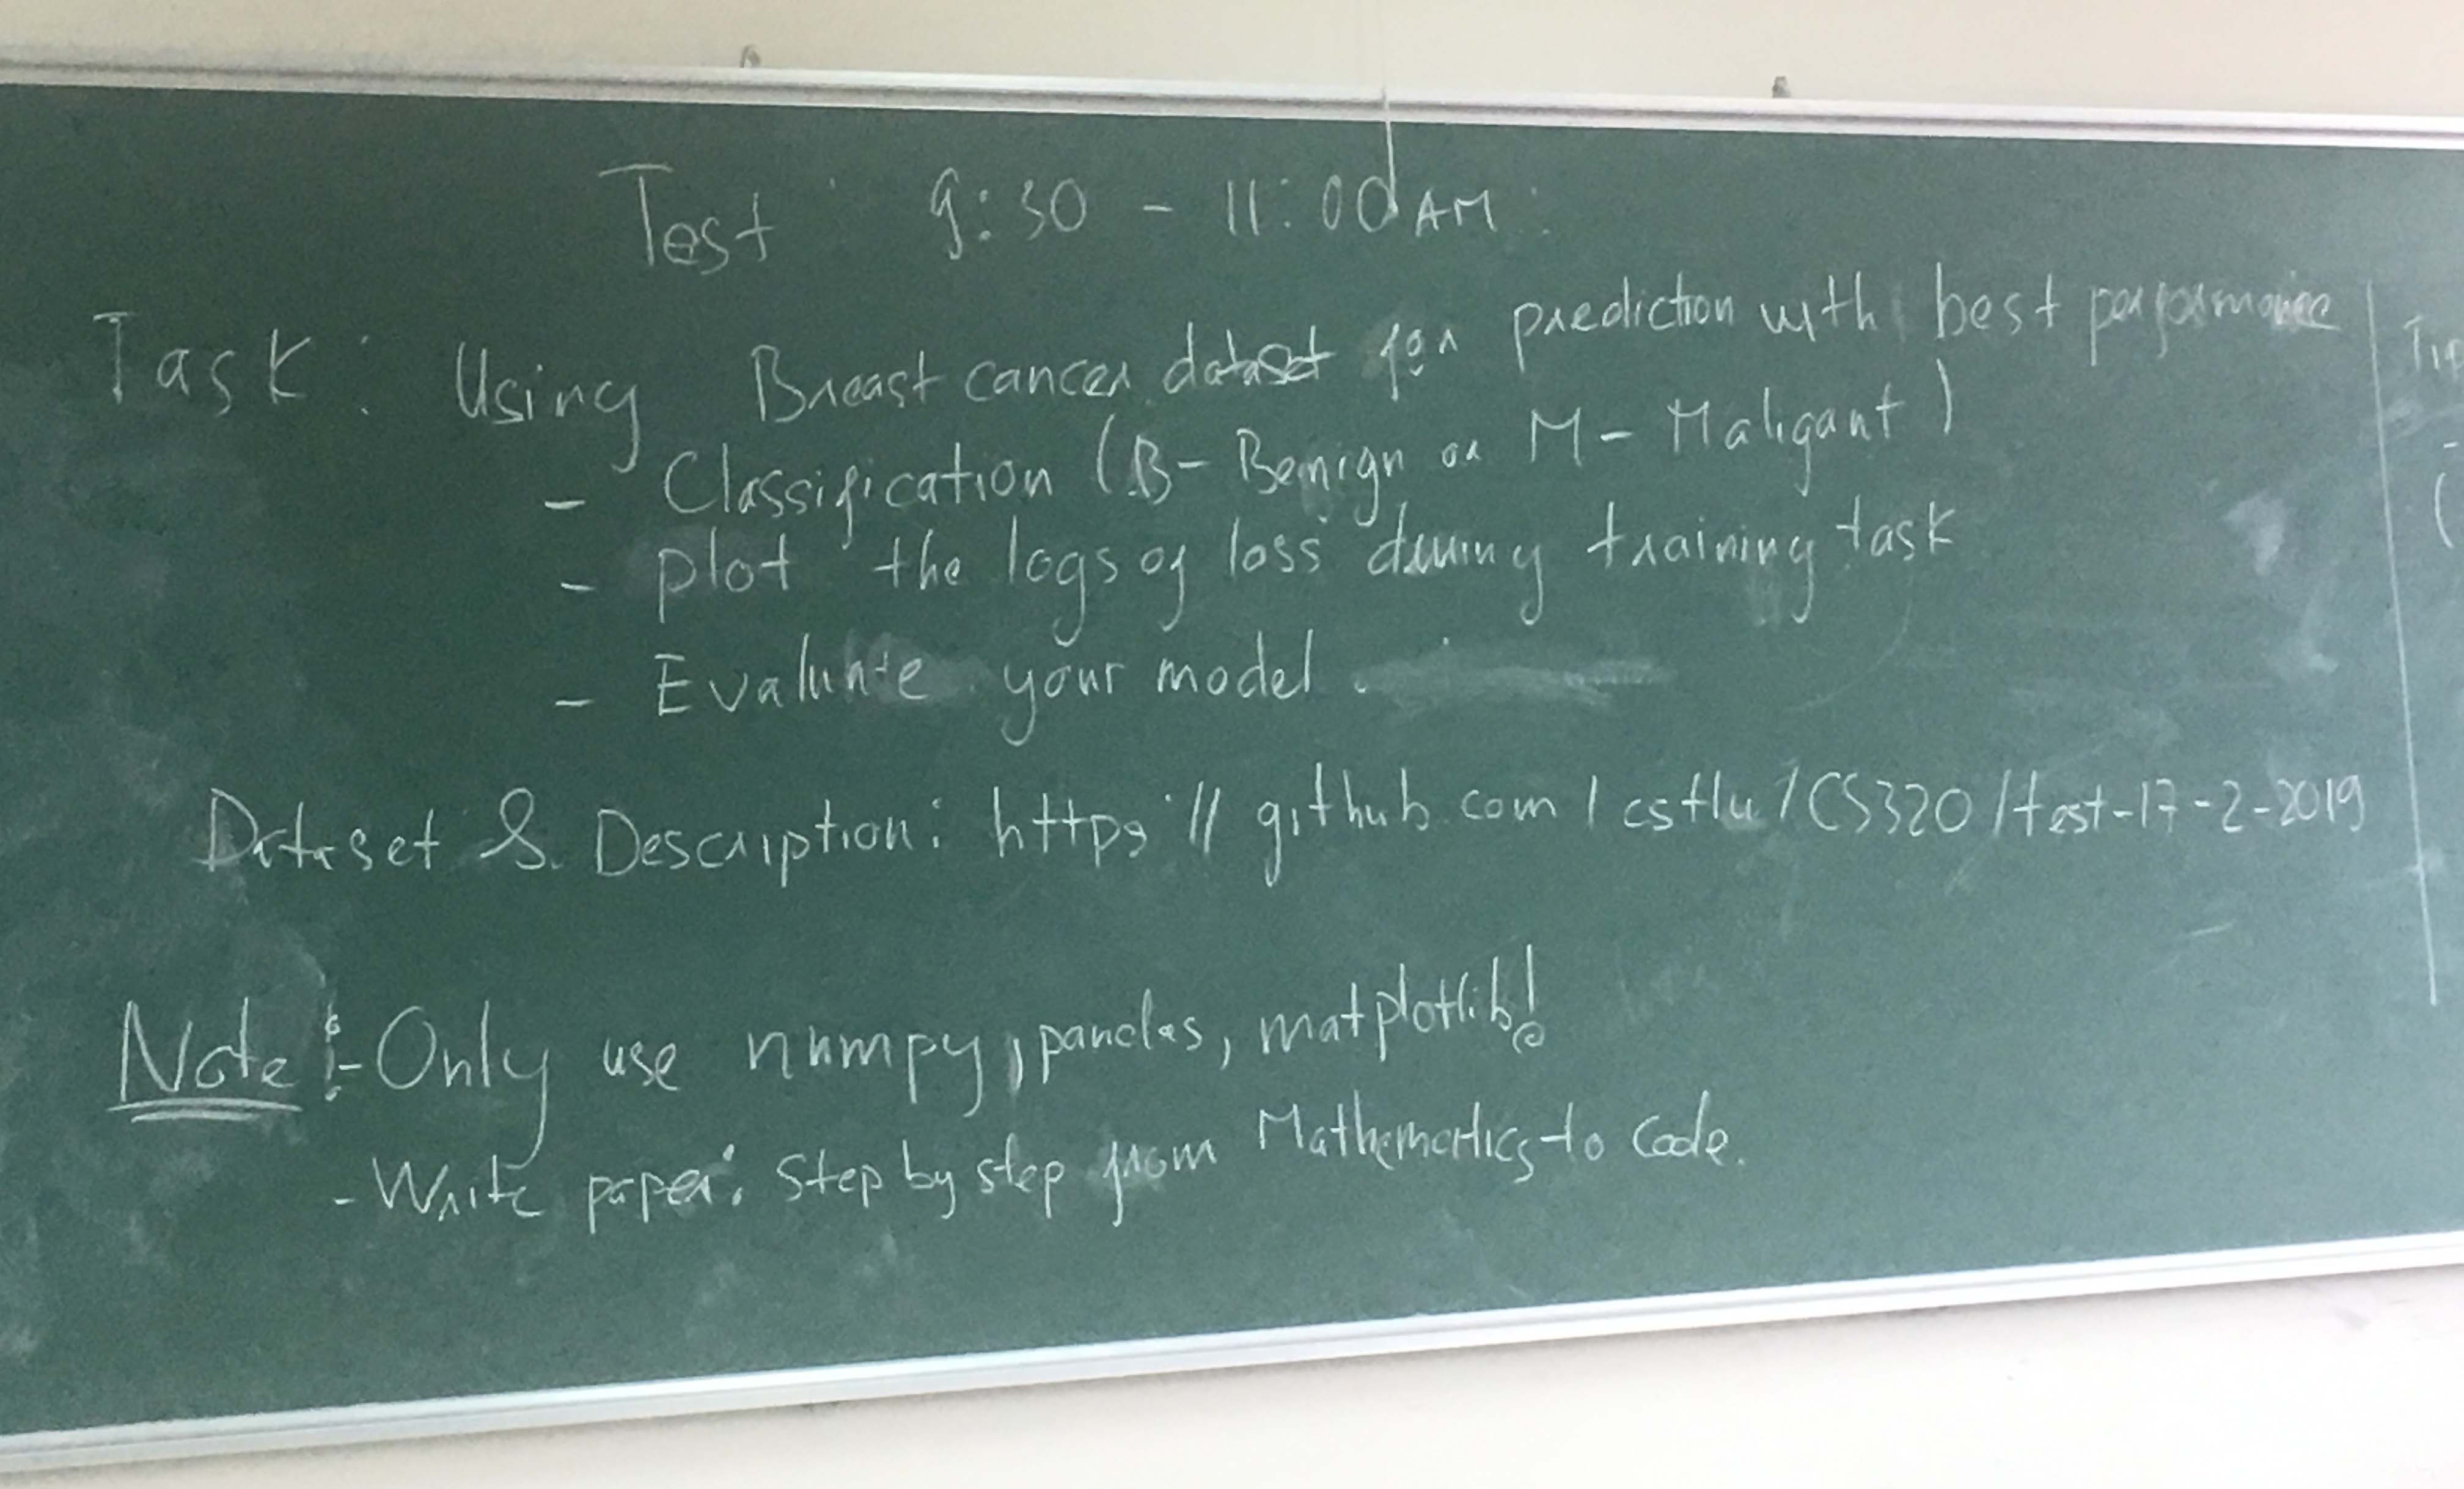 Test: 9:30 - 11:00 AM.
Task: Using Breast cancer dataset for prediction with best performance
- Classification (B- Benign or M- Maligant)
- plot the logs of loss during training task
- Evaluate your model.
Dataset & Description: https://github.com/cstlu/CS320/test-17-2-2019
Note: - Only use numpy, pandas, matplotlib!
- Write paper: Step by step from Mathematics to Code.